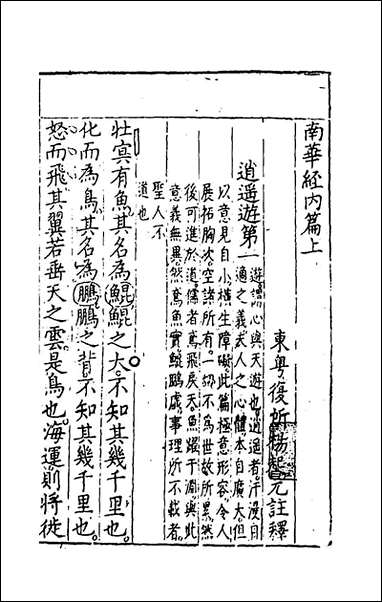 南華經內篇上
東粤復所楊 元註釋
逍遥遊第一
遊謂心與天遊也逍遥者汗漫自
適之義夫人之心體本自廣大但
以意見自小橫生障礙此篇極意形容令人
展拓胸次空諸所有一切不為世故所累然
後可進於道儒者鳶飛戾天魚躍于淵與此
意義無異然鳶魚實 鵬虛事理所不載者
聖人不
道也
壯㝠有魚其名為鯤鯤之大不知其幾千里也
化而為鳥其名為鵬鵬之背不知其幾千里也
怒而飛其翼若垂天之雲是鳥也海運則將徙